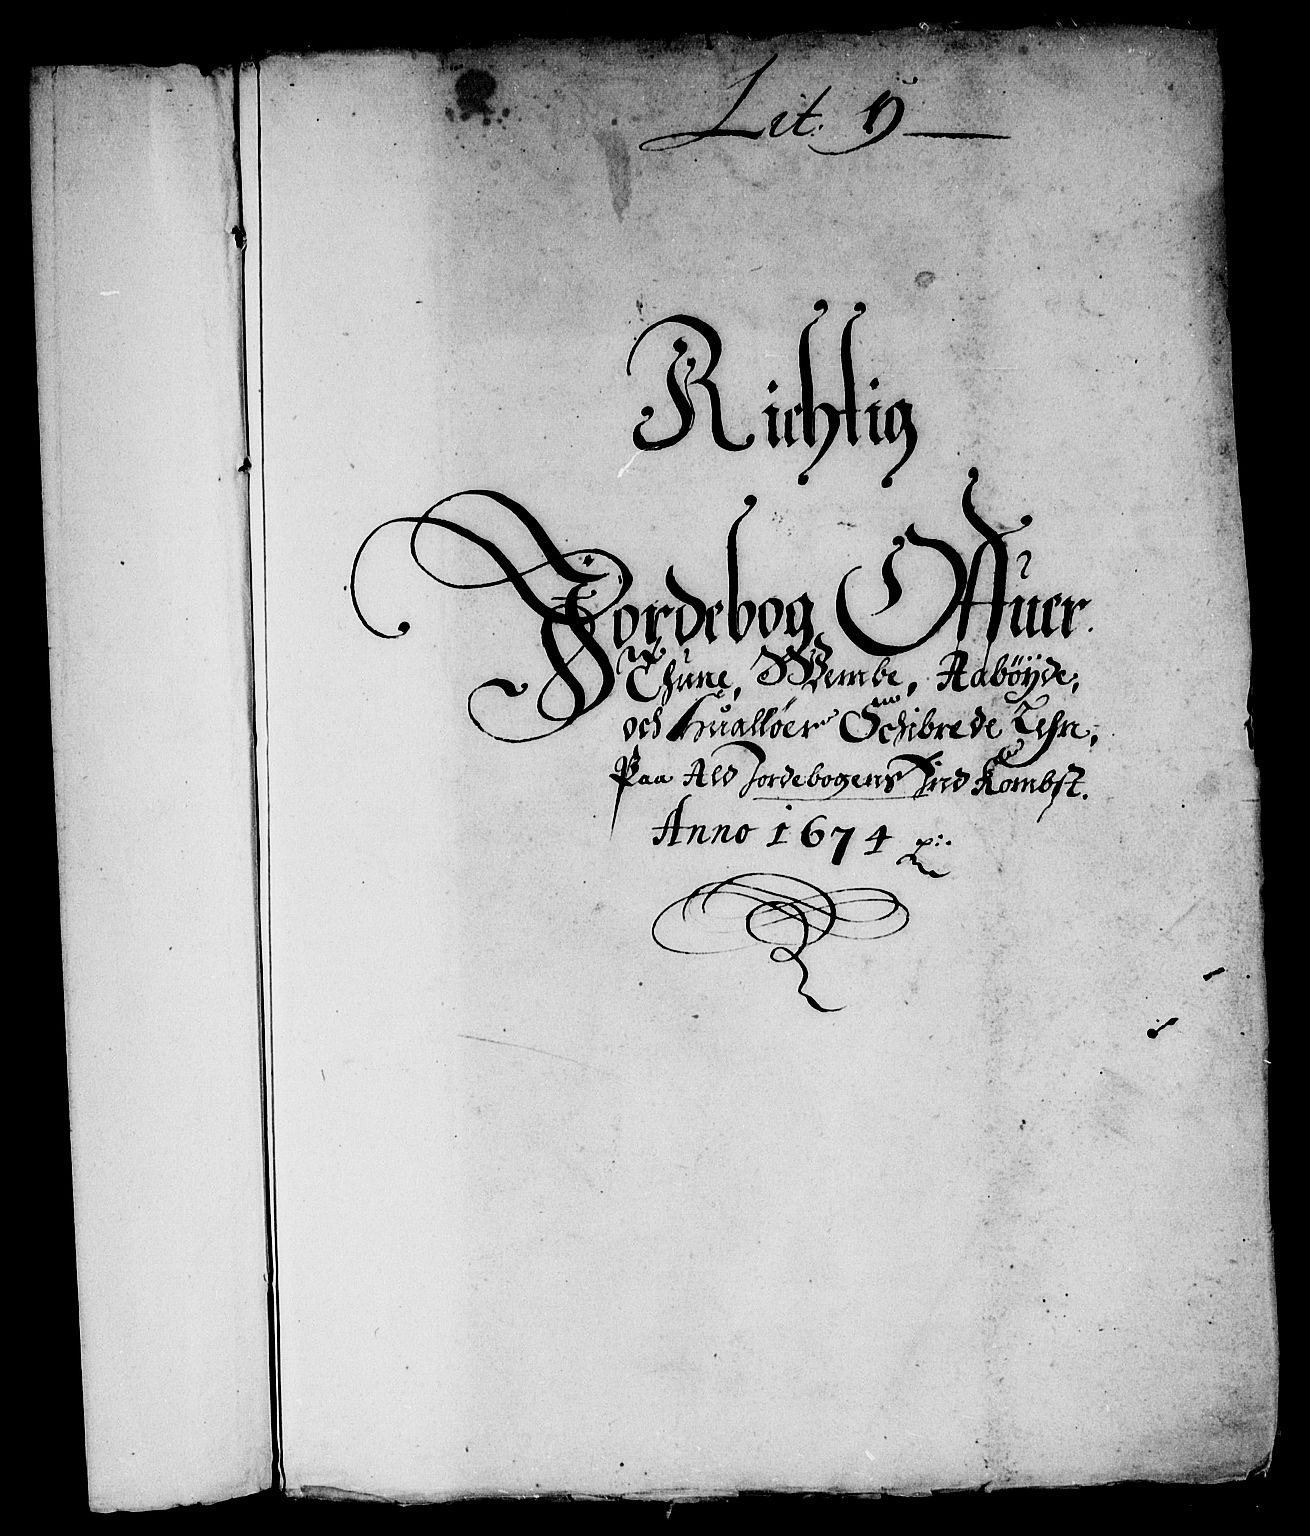 Lit. D
Richtig
Jordebog Offuer.
Thune, Wembe, Aabøÿde,
och Hualløer Schibrede Lehn,
Paa Ald Jordebogens Ind Kombst.
Anno 1674